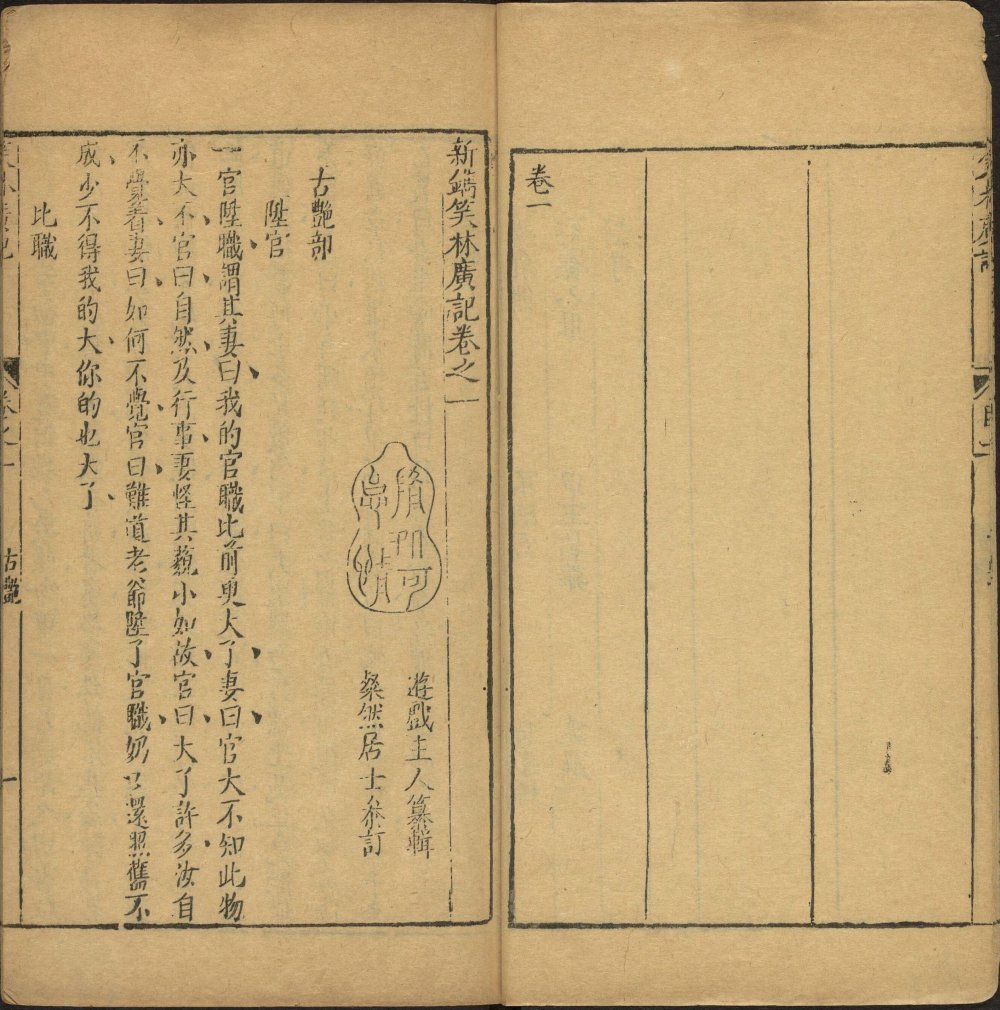 卷一
新鐫笑林廣記卷之一
遊戲主人纂輯
粲然居士參訂
古艷部
陞官
一官陞職謂其妻曰我的官職比前更大了妻曰官大不知此物
亦大不官曰自然及行事妻怪其藐小如故官曰大了許多汝自
不覺着妻曰如何不覺官曰難道老爺陞了官職奶〻還照舊不
成少不得我的大你的也大了
比職
卷之一
古艷
一